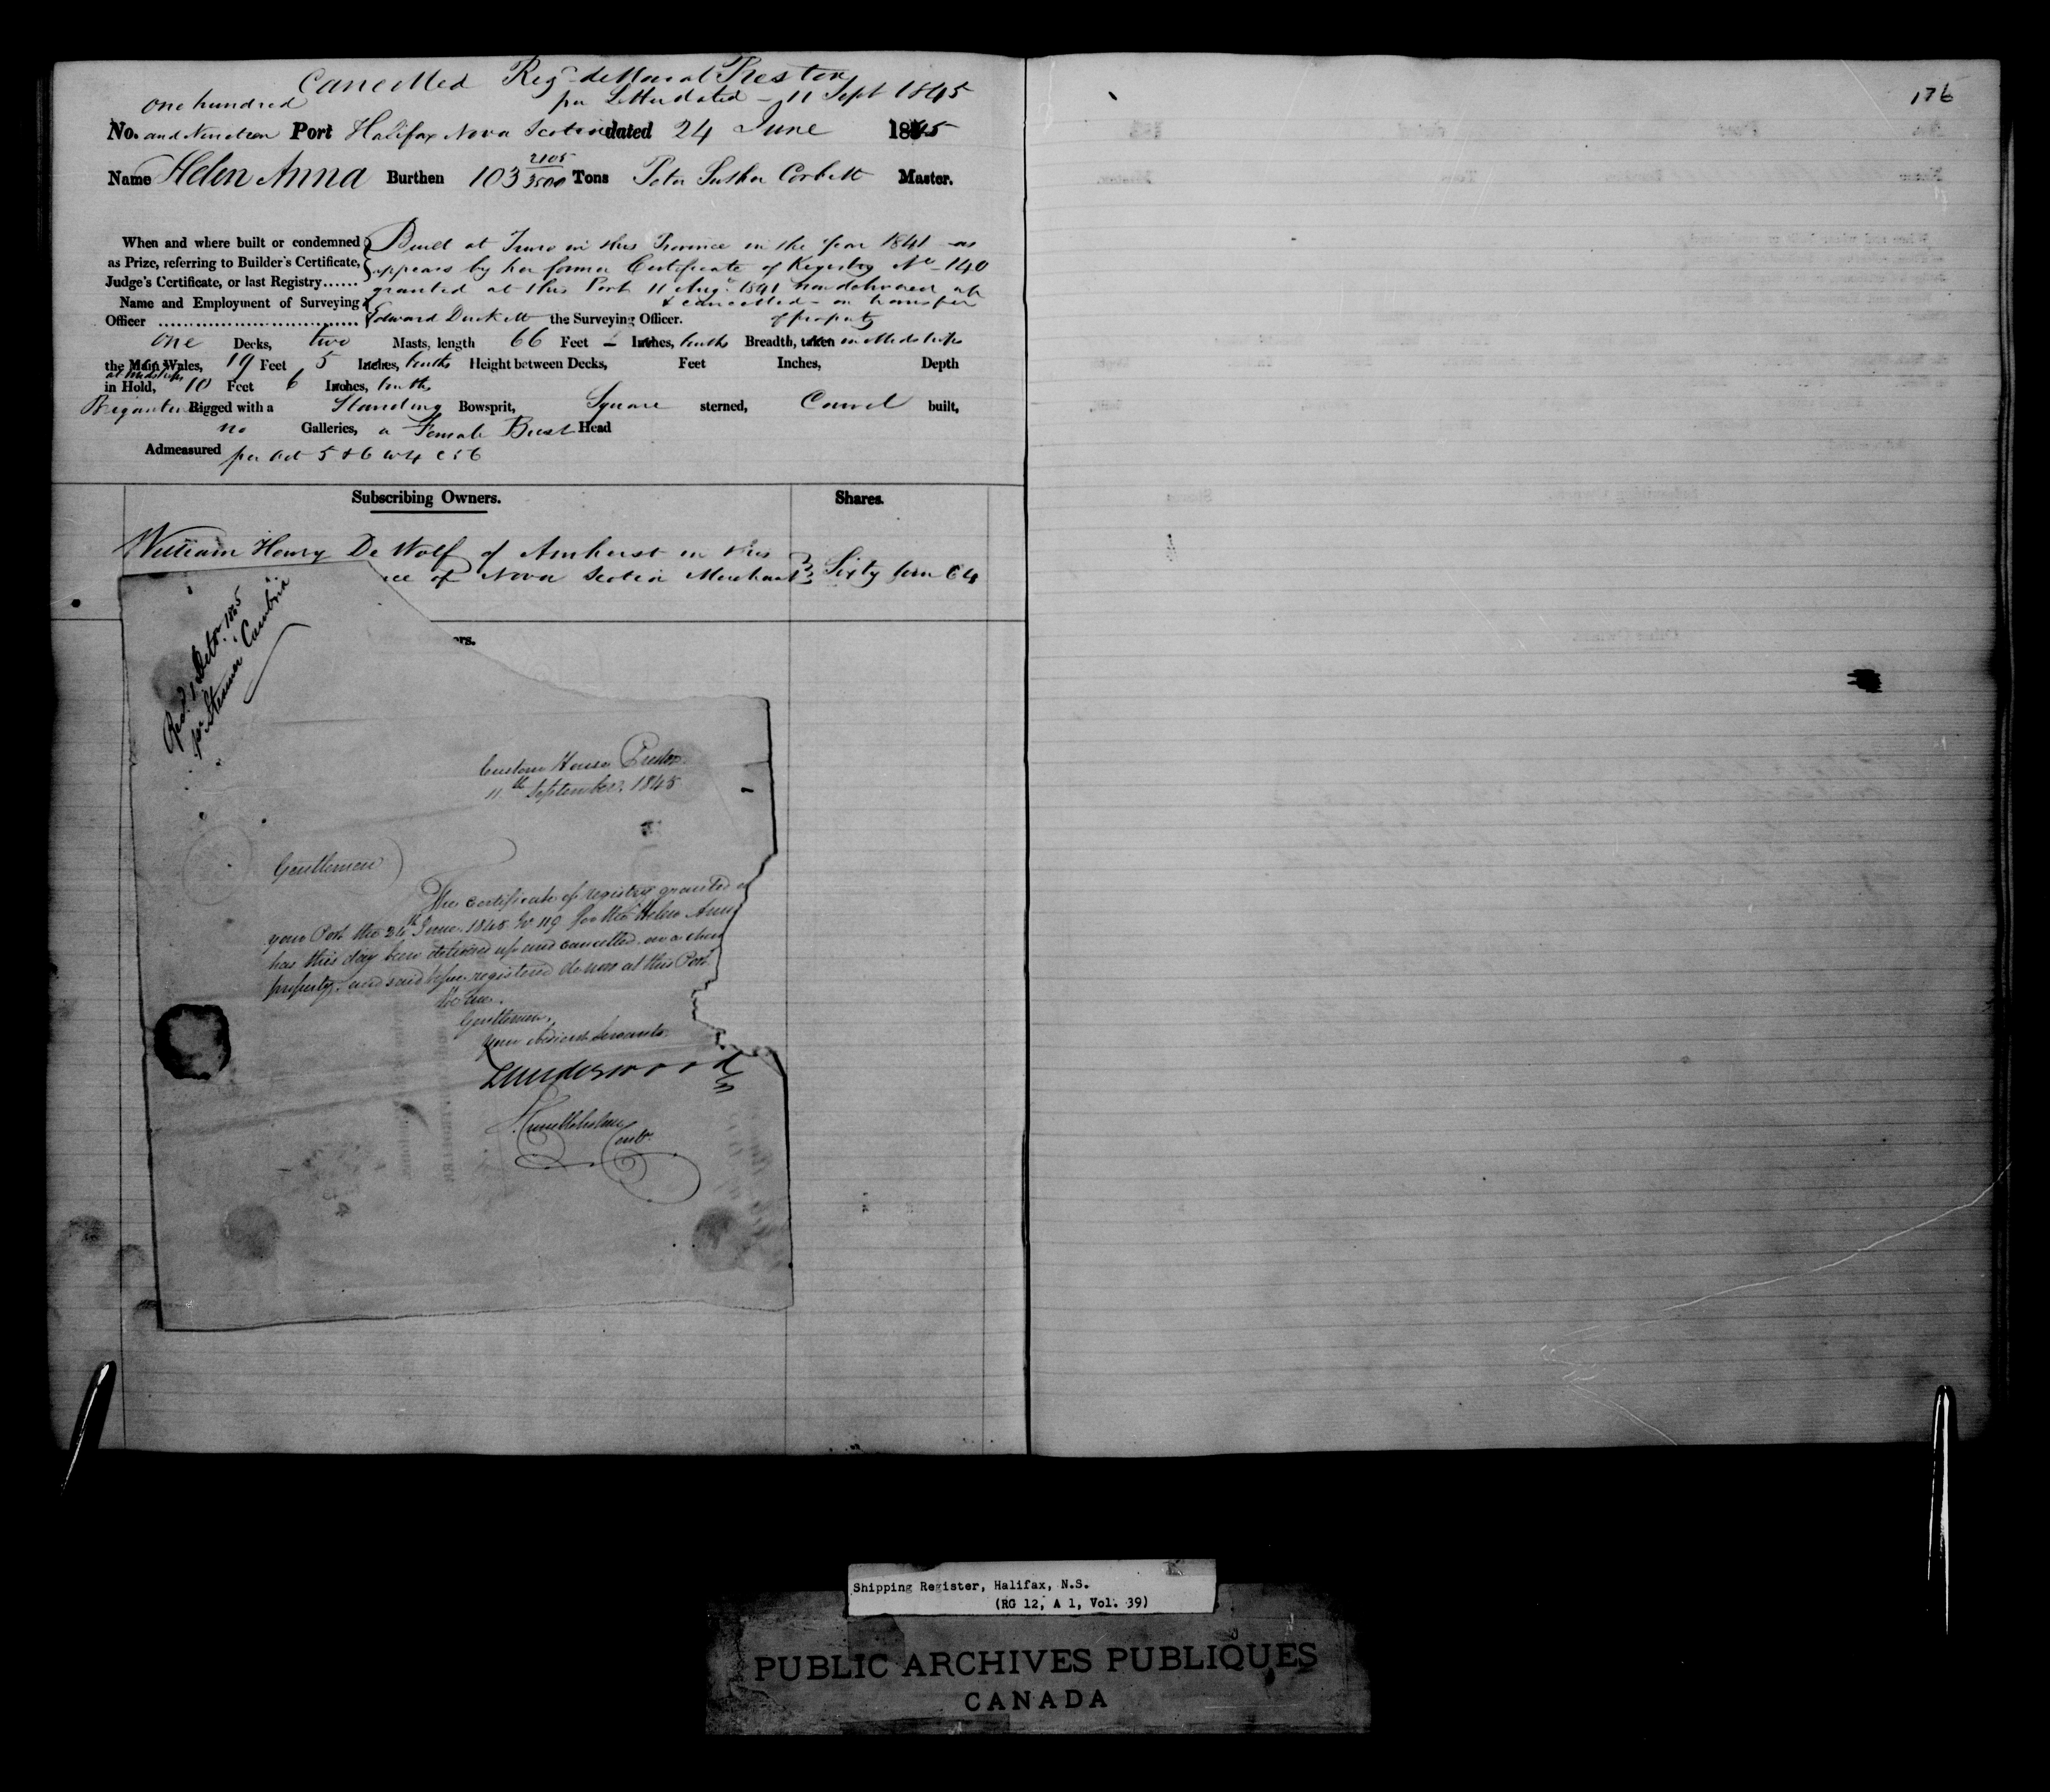 Cancelled Regd de Novo at Preston
per Letter dated 11 Sept 1845
176
one hundred
No. and Nineteen Port Halifax Nova Scotia dated 24 June 1845
Name Helen Anna Burthen 103 2105/3500 Tons Peter Corbett Master.
When and where built or condemned as Prize, referring to Builder's Certificate, Judge's Certificate, or last Registry......
Built at Truro in this Province in the year 1841 as
appears by her former Certificate of Registry No 140
granted at this Port 11 Augt 1841 now delivered up
& cancelled on transfer
of property
Name and Employment of Surveying Officer
Edward Duckett the Surveying Officer.
One Decks, two Masts, length 66 Feet - Inches, tenths Breadth, taken in Midships
the Main Wales, 19 Feet 5 Inches, tenths Height between Decks, Feet Inches, Depth
at Midships
in Hold, 10 Feet 6 Inches, tenths
Brigantine Rigged with a Standing Bowsprit, Square sterned, Carvel built,
no Galleries, a Female Bust Head
Admeasured per Act 5 & 6 W 4 C 56
Subscribing Owners. Shares.
William Henry De Wolf of Amherst in this
ce of Nova Scotia Merchant Sixty four 64
ers.
Recd. 1 Octr. 1845
pr Steamer Cambria
Custom House Preston
11th September 1845
Gentlemen
The certificate of registry granted at
your Port the 24th June 1845 No 119 for the Helen Anna
has this day been delivered up and cancelled on a chan
property, and said vessel registered de novo at this Port
We are
Gentlemen,
Your obedient Servants
Underwood
Contr.
Shipping Register, Halifax, N.S.
(RG 12, A 1, Vol. 39)
PUBLIC ARCHIVES PUBLIQUES
CANADA